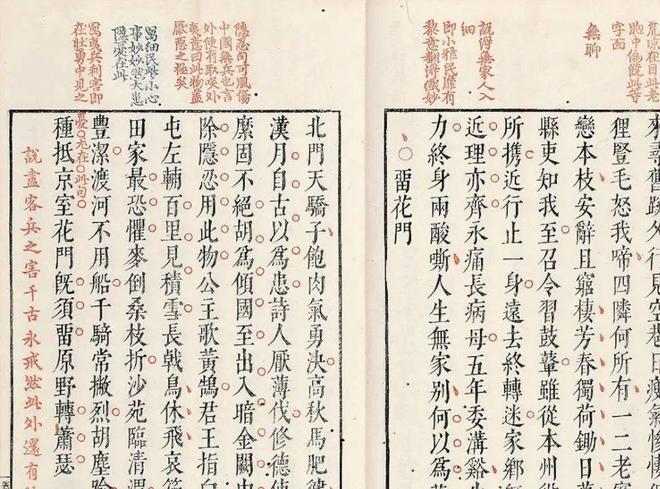 荒涼在目此老
胸中備饒此等
字面
無聊
說得無家人入
細
即小雅民靡有
黎意翻得微妙
來尋舊蹊久行見空巷日瘦氣慘悽但
貍豎毛怒我啼四隣何所有一二老寡
戀本枝安辭且窮棲芳春獨荷鋤日暮
縣吏知我至召令習鼓鞞雖從本州役
所攜近行止一身遠去終轉迷家鄉
近理亦齊永痛長病母五年委溝谿生
力終身兩酸嘶人生無家別何以爲蒸
留花門
隱忍句可風傷
中國無兵也言
外便有取笑外
夷意曰此物盡
厭惡之極矣
寫細民點小心
事妙妙然大患
隱憂在此
寫戎兵利害即
在壯勇中見之
北門天驕子飽肉氣勇決高秋馬肥健
漢月自古以爲患詩人厭薄伐修德使
縻固不絕胡爲傾國至出入暗金闕中
除隱忍用此物公主歌黃鵠君王指白
屯左輔百里見積雪長戟鳥休飛哀笳
田家最恐懼麥倒桑枝折沙苑臨清渭
豐潔渡河不用船千騎常撇烈胡塵踰
憂尤在此句
種抵京室花門既須留原野轉蕭瑟
說盡客兵之害千古永戒然此外還有